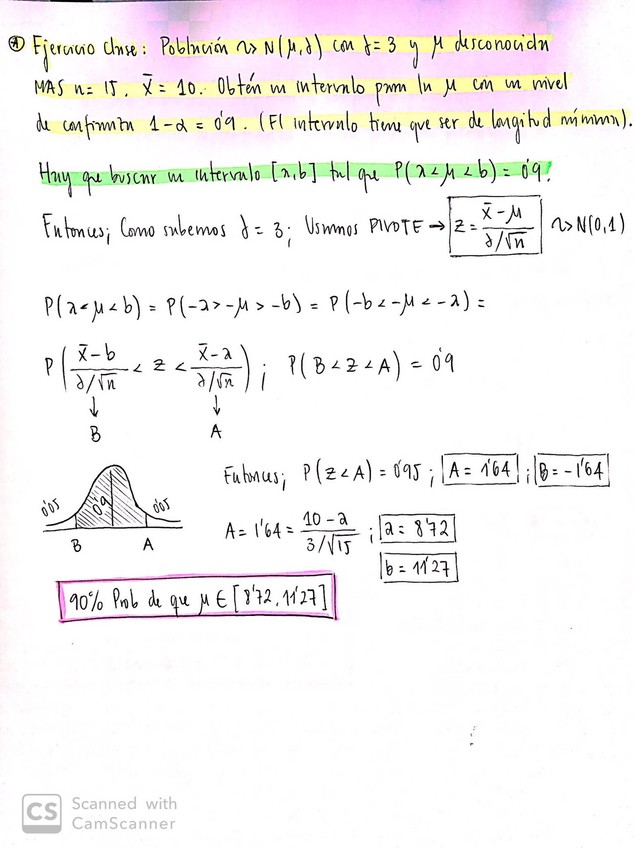 Ejercicio clase: Población ~> N(μ,σ) con σ=3 y μ desconocida
MAS n=15, x̄=10. Obtén un intervalo para la μ con un nivel
de confianza 1-α=0'9. (El intervalo tiene que ser de longitud mínima).
Hay que buscar un intervalo [a,b] tal que P(a<μ<b)=0'9!
Entonces; Como sabemos σ=3; Usamos PIVOTE → Z = (x̄-μ)/(σ/√n) ~> N(0,1)
P(a<μ<b) = P(-a>-μ>-b) = P(-b<-μ<-a) =
P( (x̄-b)/(σ/√n) < Z < (x̄-a)/(σ/√n) ) ; P(B<Z<A) = 0'9
↓ ↓
B A
Entonces; P(Z<A)=0'95 ; A=1'64 ; B=-1'64
0'05 0'9 0'05
B A
A=1'64= (10-a)/(3/√15) ; a=8'72
b=11'27
90% Prob de que μ ∈ [8'72, 11'27]
CS Scanned with
CamScanner